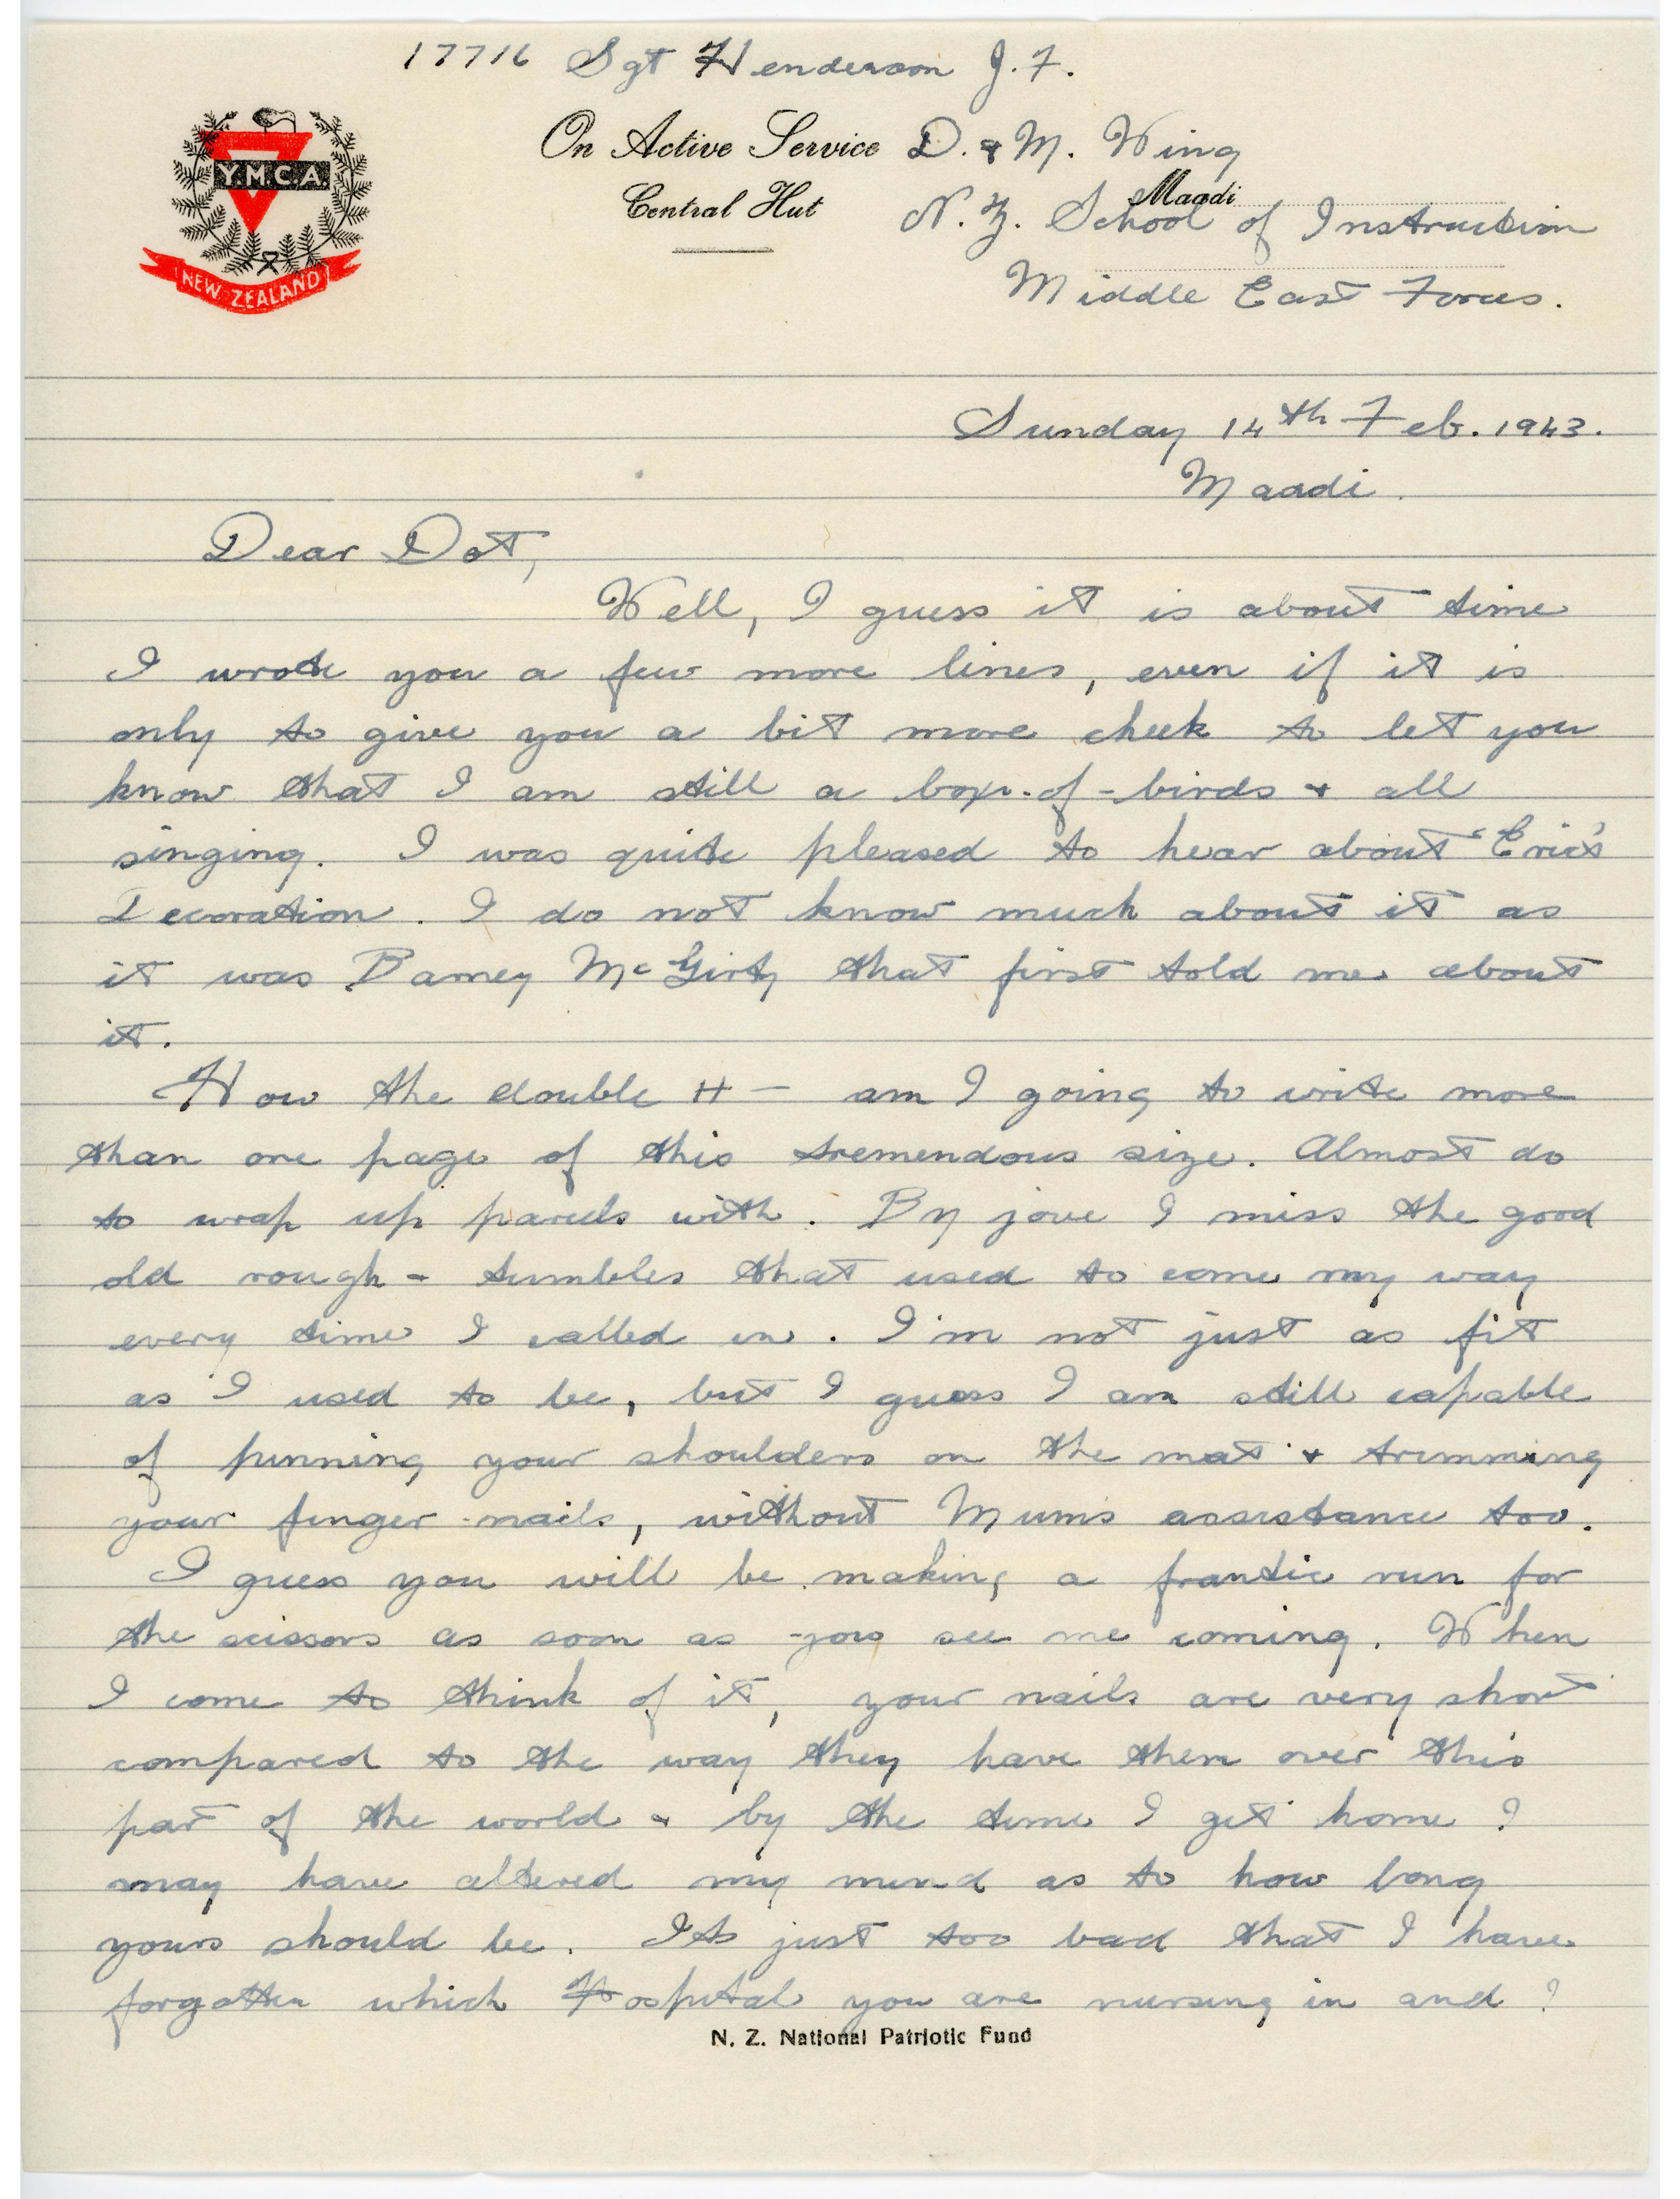 17716 Sgt Henderson J.F.
Y.M.C.A.
NEW ZEALAND
On Active Service D. & M. Wing
Central Hut Maadi
N.Z. School of Instruction
Middle East Forces.
Sunday 14th Feb. 1943.
Maadi.
Dear Dot,
Well, I guess it is about time
I wrote you a few more lines, even if it is
only to give you a bit more cheek to let you
know that I am still a box-of-birds & all
singing. I was quite pleased to hear about Eric's
Decoration. I do not know much about it as
it was Barney McGirty that first told me about
it.
How the double H— am I going to write more
than one page of this tremendous size. Almost do
to wrap up parcels with. By jove I miss the good
old rough & tumbles that used to come my way
every time I called in. I'm not just as fit
as I used to be, but I guess I am still capable
of pinning your shoulders on the mat & trimming
your finger-nails, without Mum's assistance too.
I guess you will be making a frantic run for
the scissors as soon as you see me coming. When
I come to think of it, your nails are very short
compared to the way they have them over this
part of the world & by the time I get home I
may have altered my mind as to how long
yours should be. Its just too bad that I have
forgotten which Hospital you are nursing in and I
N. Z. National Patriotic Fund